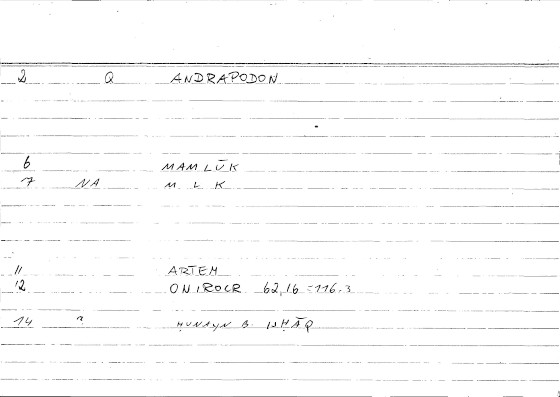 2 Q ANDRAPODON
6 MAMLŪK
7 NA M L K
11 ARTEM
12 ONIROCR 62,16 = 116.3
14 ḤUNAYN B ISḤĀQ